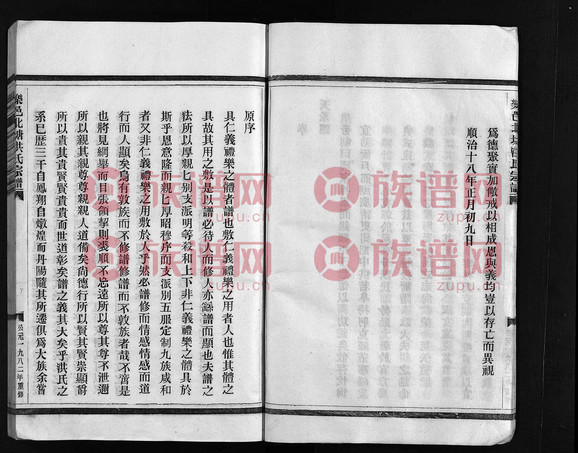 為德聚實加儆戒以相成恩與義均豈以存亡而異視
順治十八年正月初九日
原序
具仁義禮樂之體者譜也敷仁義禮樂之用者人也惟其體之
具故其用之敷是以譜必待人而修人亦繇譜而顯也夫譜之
法所以厚親匕別支派明等殺和上下非仁義禮樂之體具於
斯乎恩意隆而親匕厚昭穆序而支派別五服定制九族咸和
者又非仁義禮樂之用敷於人乎然必譜修而情感情感而道
行而人顯矣烏有敦族而不修譜修譜而不敦族者哉不啻是
也將見綱舉而目張領挈則裘順不忘遠所以尊其尊不泄邇
所以親其親尊尊親親人道備矣尚德行所以賢其賢崇顯爵
所以貴其貴賢賢貴貴而世道彰矣譜之義其大矣乎洪氏之
系巳歷三千自鳳翔自燉煌而丹陽隨其所遷俱爲大族余嘗
樂邑北塘洪氏宗譜
公元一九八二年重修
族谱网
zupu.cn
族谱网
zupu.cn
族谱网
zupu.cn
族谱网
zupu.cn